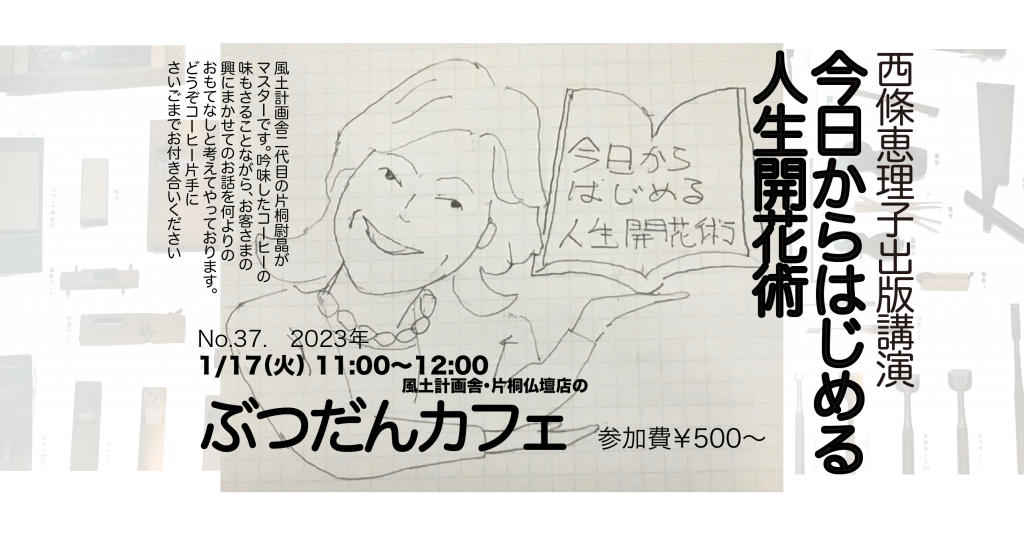 西條恵理子出版講演
今日からはじめる
人生開花術
今日から
はじめる
人生開花術
風土計画舎二代目の片桐尉晶が
マスターです。吟味したコーヒーの
味もさることながら、お客さまの
興にまかせてのお話を何よりの
おもてなしと考えてやっております。
どうぞコーヒー片手に
さいごまでお付き合いください
No.37. 2023年
1/17(火) 11:00〜12:00
風土計画舎・片桐仏壇店の
ぶつだんカフェ
参加費¥500〜